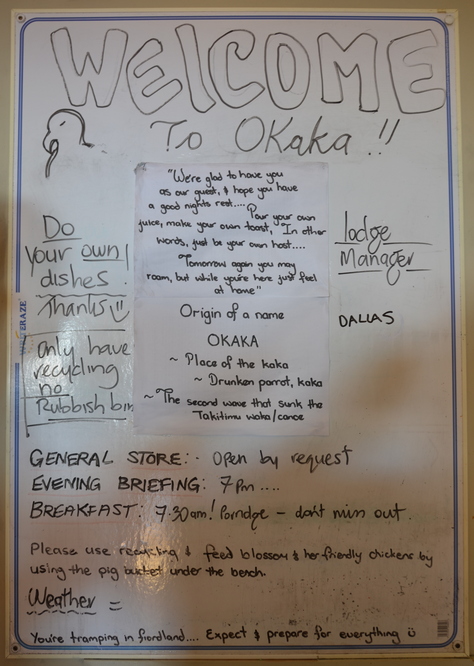 WElCOME
To OKaKa !!
"We're glad to have you
as our guest, & hope you have
a good nights rest.... Pour your own
juice, make your own toast, "In other
words, just be your own host....
Tomorrow again you may
roam, but while you're here just feel
at home"
Origin of a name
OKAKA
~ Place of the kaka
~ Drunken parrot, kaka
~ The second wave that sunk the
Takitimu waka/canoe
Do
your own
dishes.
Thanks
only have
recycling
no
Rubbish bin
lodge
Manager
DALLAS
GENERAL STORE:- Open by request
EVENING BRIEFING: 7pm....
BREAKFAST: 7.30am! Porridge - don't miss out.
Please use recycling & feed blossom & her friendly chickens by
using the pig bucket under the bench.
Weather =
You're tramping in fiordland.... Expect & prepare for everything